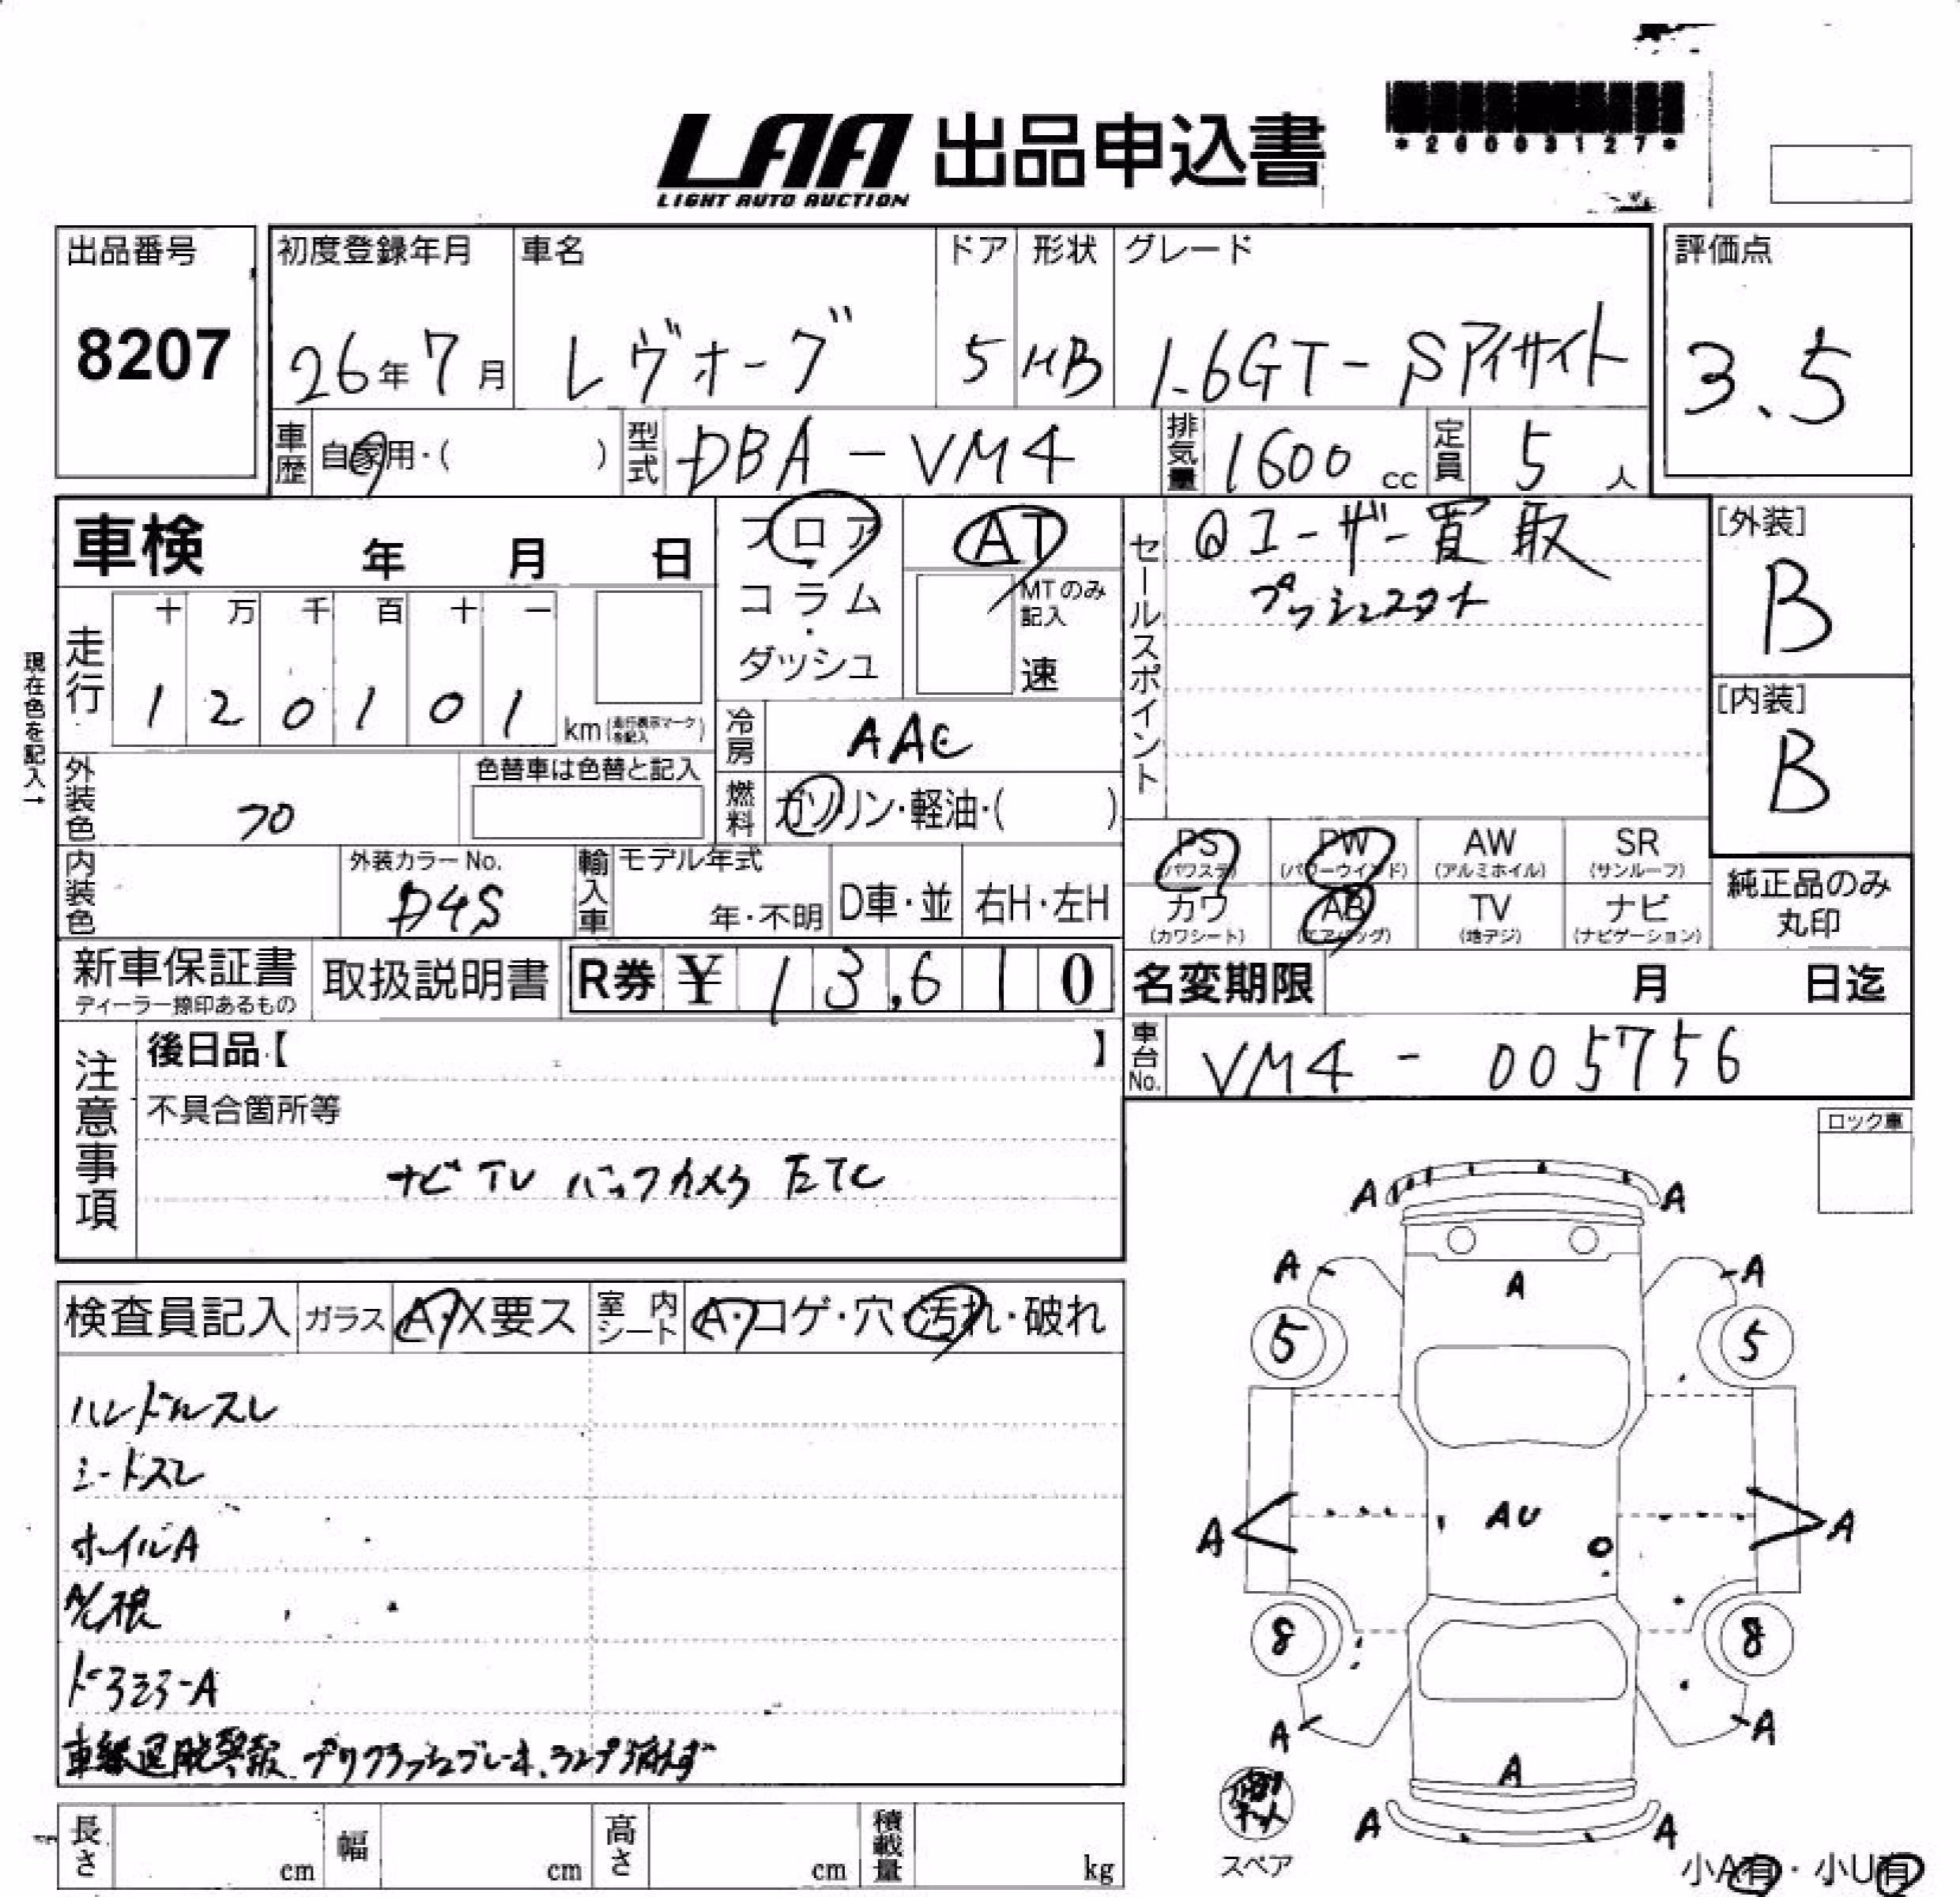 *26003127*
LAA 出品申込書
LIGHT AUTO AUCTION
出品番号 初度登録年月 車名 ドア 形状 グレード 評価点
8207 26年7月 レヴォーグ 5 HB 1.6GT-Sアイサイト 3.5
車歴 自家用・( ) 型式 DBA-VM4 排気量 1600 cc 定員 5 人
車検 年 月 日
フロア・コラム・ダッシュ
AT
MTのみ記入
速
セールスポイント
ユーザー買取
プッシュスタート
[外装]
B
[内装]
B
現在色を記入→
走行 十 万 千 百 十 一
1 2 0 1 0 1 km (走行表示マークを記入)
冷房 AAC
燃料 ガソリン・軽油・( )
外装色 クロ 色替車は色替と記入
内装色 外装カラーNo. D4S 輸入車 モデル年式 年・不明 D車・並 右H・左H
PS (パワステ) PW (パワーウインド) AW (アルミホイル) SR (サンルーフ)
カワ (カワシート) AB (エアバッグ) TV (地デジ) ナビ (ナビゲーション)
純正品のみ丸印
新車保証書 ディーラー捺印あるもの 取扱説明書 R券 ¥ 13,610
名変期限 月 日迄
車台No. VM4-005756
注意事項
後日品【 】
不具合箇所等
ナビ TV バックカメラ ETC
ロック車
検査員記入 ガラス A・X要ス 室内シート A・コゲ・穴・汚れ・破れ
ハンドルスレ
シートスレ
ホイルA
A/C根
ドアミラーA
車線逸脱警報、プリクラッシュブレーキ、ランプ消えず
A A
A A
A
5 5
A AU A
8 8
A A
A
A A
スペア
小A有・小U有
長さ cm 幅 cm 高さ cm 積載量 kg